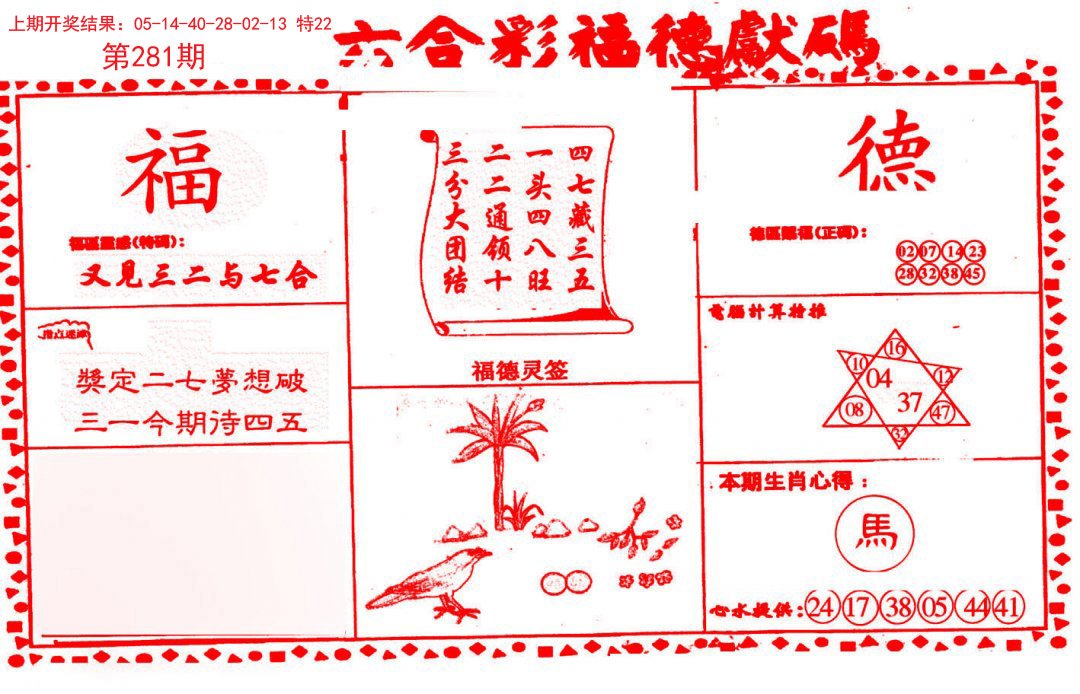 上期开奖结果：05-14-40-28-02-13 特22
第281期
六合彩福德獻碼
福
福區靈感(特碼)：
又見三二与七合
指点迷津
獎定二七夢想破
三一今期待四五
四七藏三五
一头四八旺
二二通领十
三分大团结
福德灵签
德
德區賜福(正碼)：
02 07 14 23
28 32 38 45
電腦計算特推
16
10 12
04
37
08 47
32
本期生肖心得：
馬
心水提供：24 17 38 05 44 41